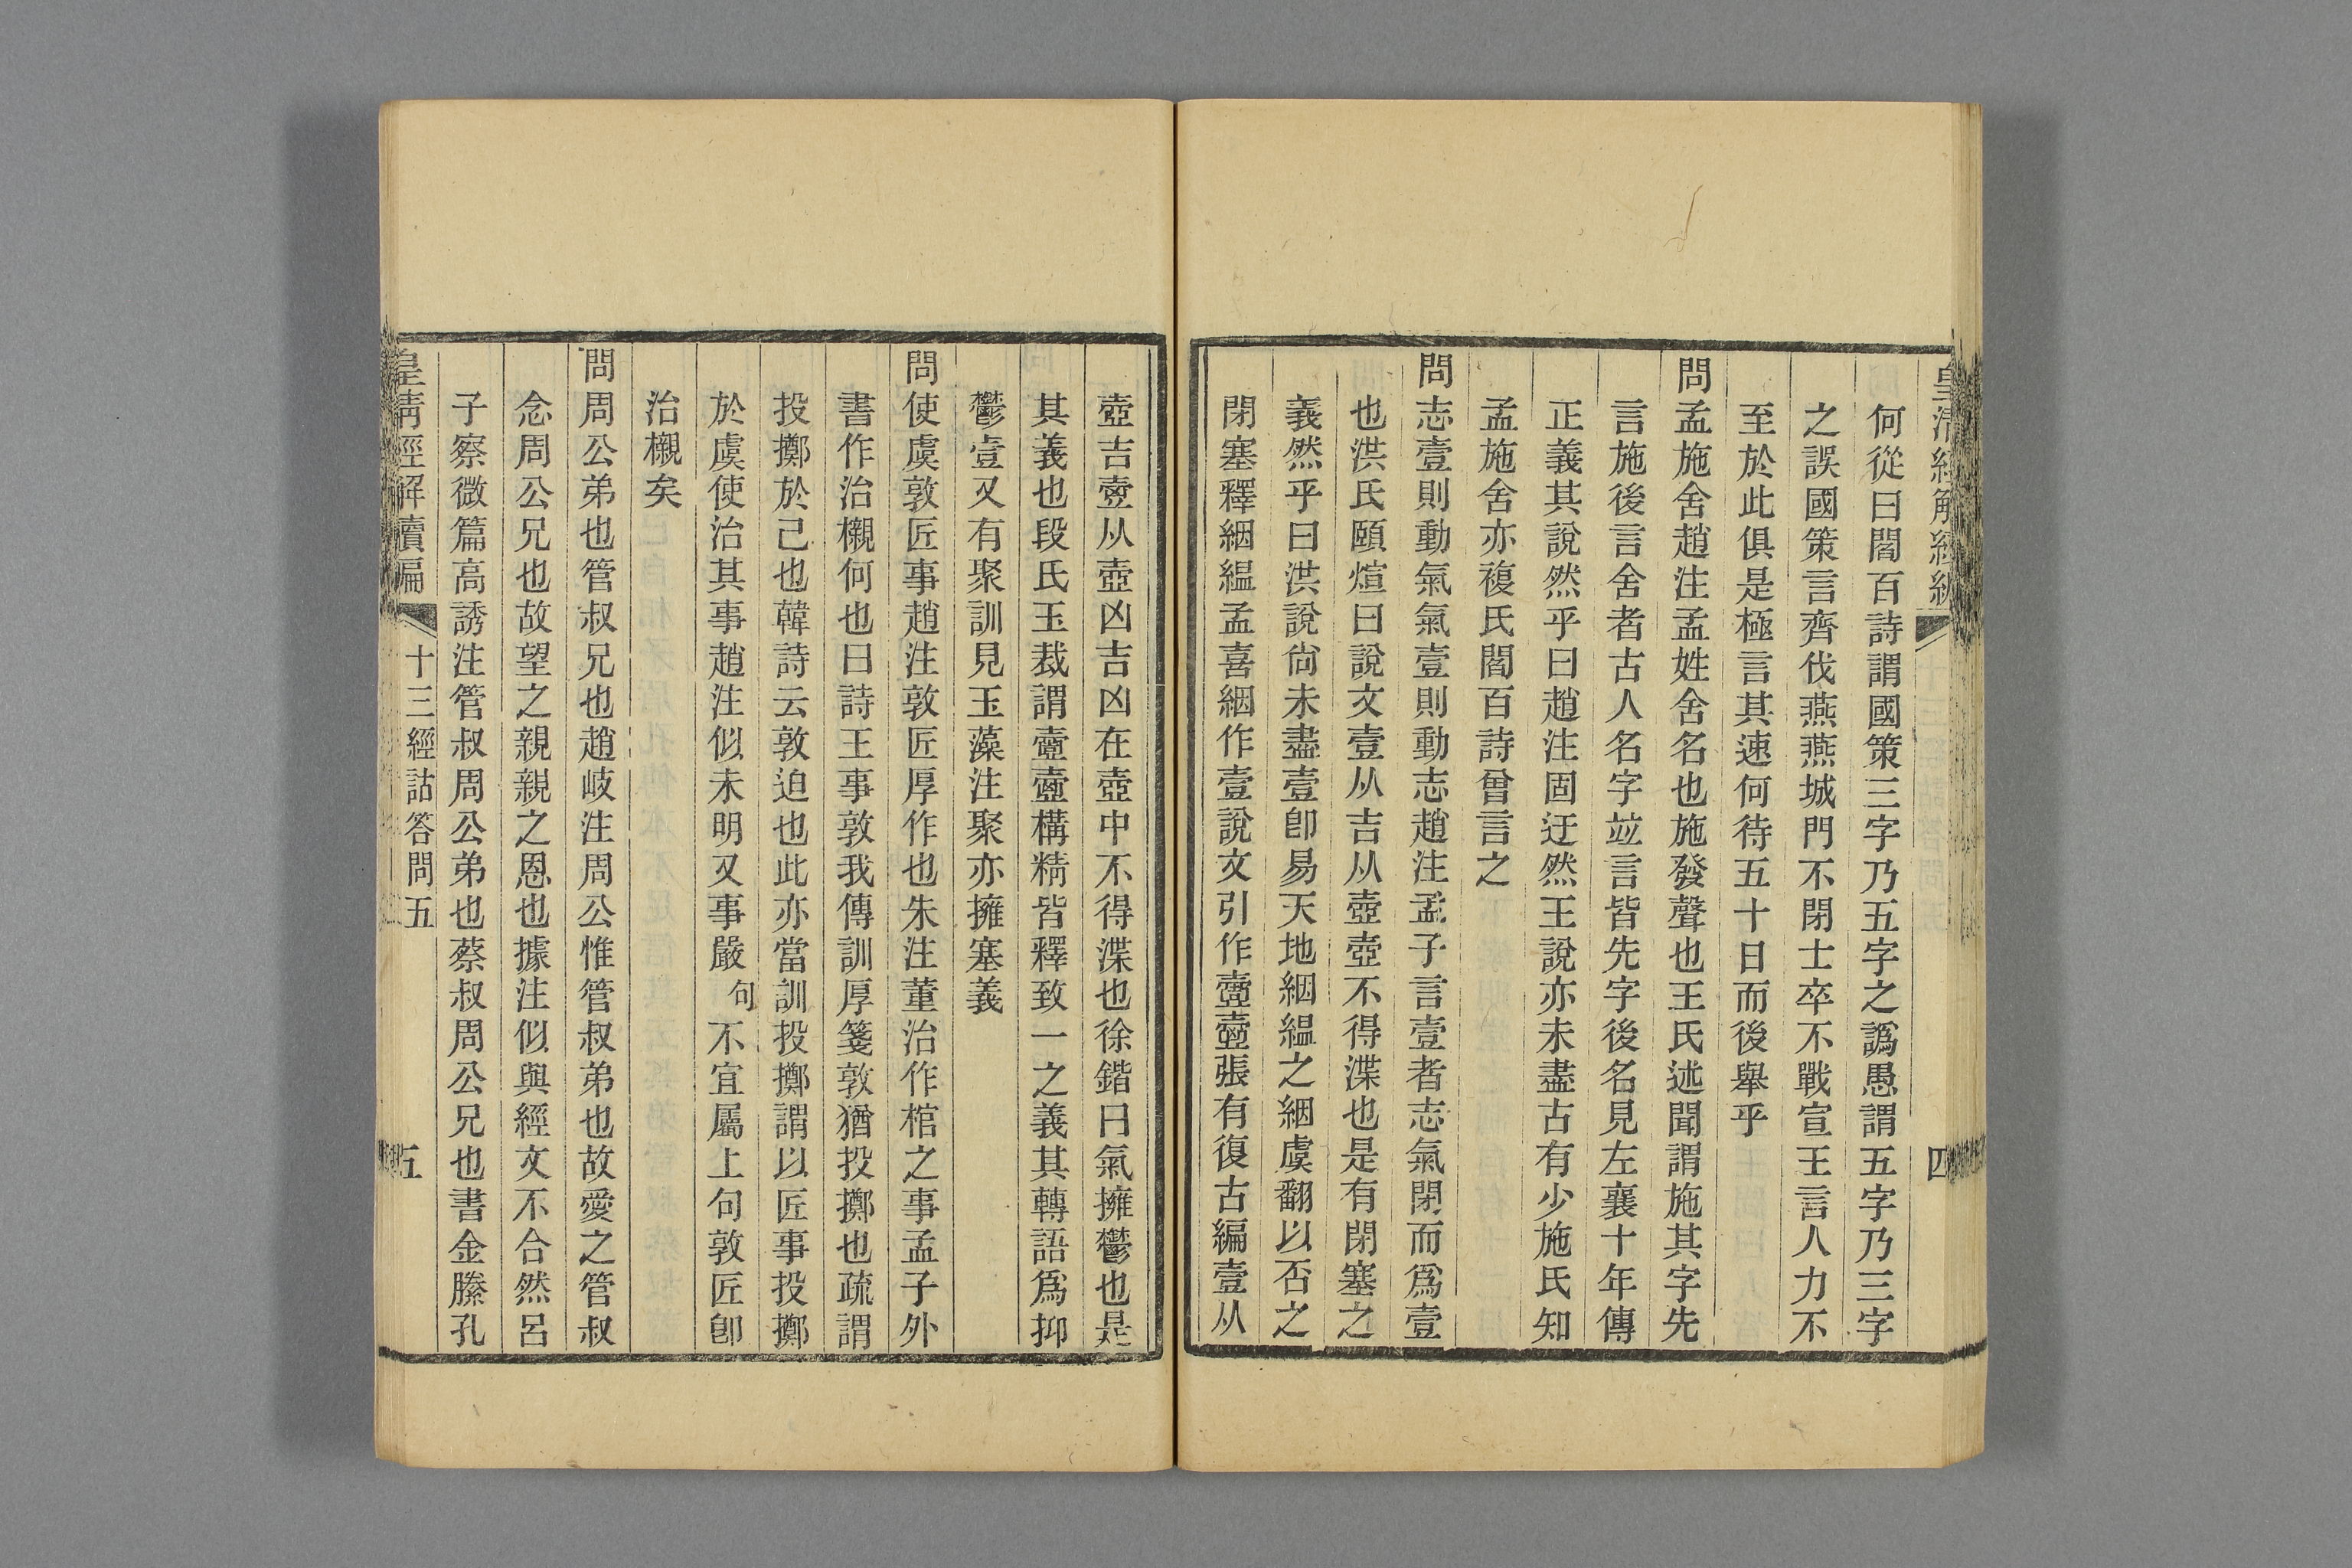 皇清經解續編
四
何從曰閻百詩謂國策三字乃五字之譌愚謂五字乃三字
之誤國策言齊伐燕燕城門不閉士卒不戰宣王言人力不
至於此俱是極言其速何待五十日而後舉乎
問孟施舍趙注孟姓舍名也施發聲也王氏述聞謂施其字先
言施後言舍者古人名字竝言皆先字後名見左襄十年傳
正義其說然乎曰趙注固迂然王說亦未盡古有少施氏知
孟施舍亦複氏閻百詩曾言之
問志壹則動氣氣壹則動志趙注孟子言壹者志氣閉而爲壹
也洪氏頤煊曰說文壹从吉从壺壺不得渫也是有閉塞之
義然乎曰洪說尙未盡壹卽易天地絪縕之絪虞翻以否之
閉塞釋絪縕孟喜絪作壹說文引作壼壺張有復古編壹从
壺吉壺从壺凶吉凶在壺中不得渫也徐鍇曰氣擁鬱也是
其義也段氏玉裁謂壼壺構精皆釋致一之義其轉語爲抑
鬱壹又有聚訓見玉藻注聚亦擁塞義
問使虞敦匠事趙注敦匠厚作也朱注董治作棺之事孟子外
書作治櫬何也曰詩王事敦我傳訓厚箋敦猶投擲也疏謂
投擲於己也韓詩云敦迫也此亦當訓投擲謂以匠事投擲
於虞使治其事趙注似未明又事嚴句不宜屬上句敦匠卽
治櫬矣
問周公弟也管叔兄也趙岐注周公惟管叔弟也故愛之管叔
念周公兄也故望之親親之恩也據注似與經文不合然呂
子察微篇高誘注管叔周公弟也蔡叔周公兄也書金縢孔
皇清經解續編
十三經詁答問五
五